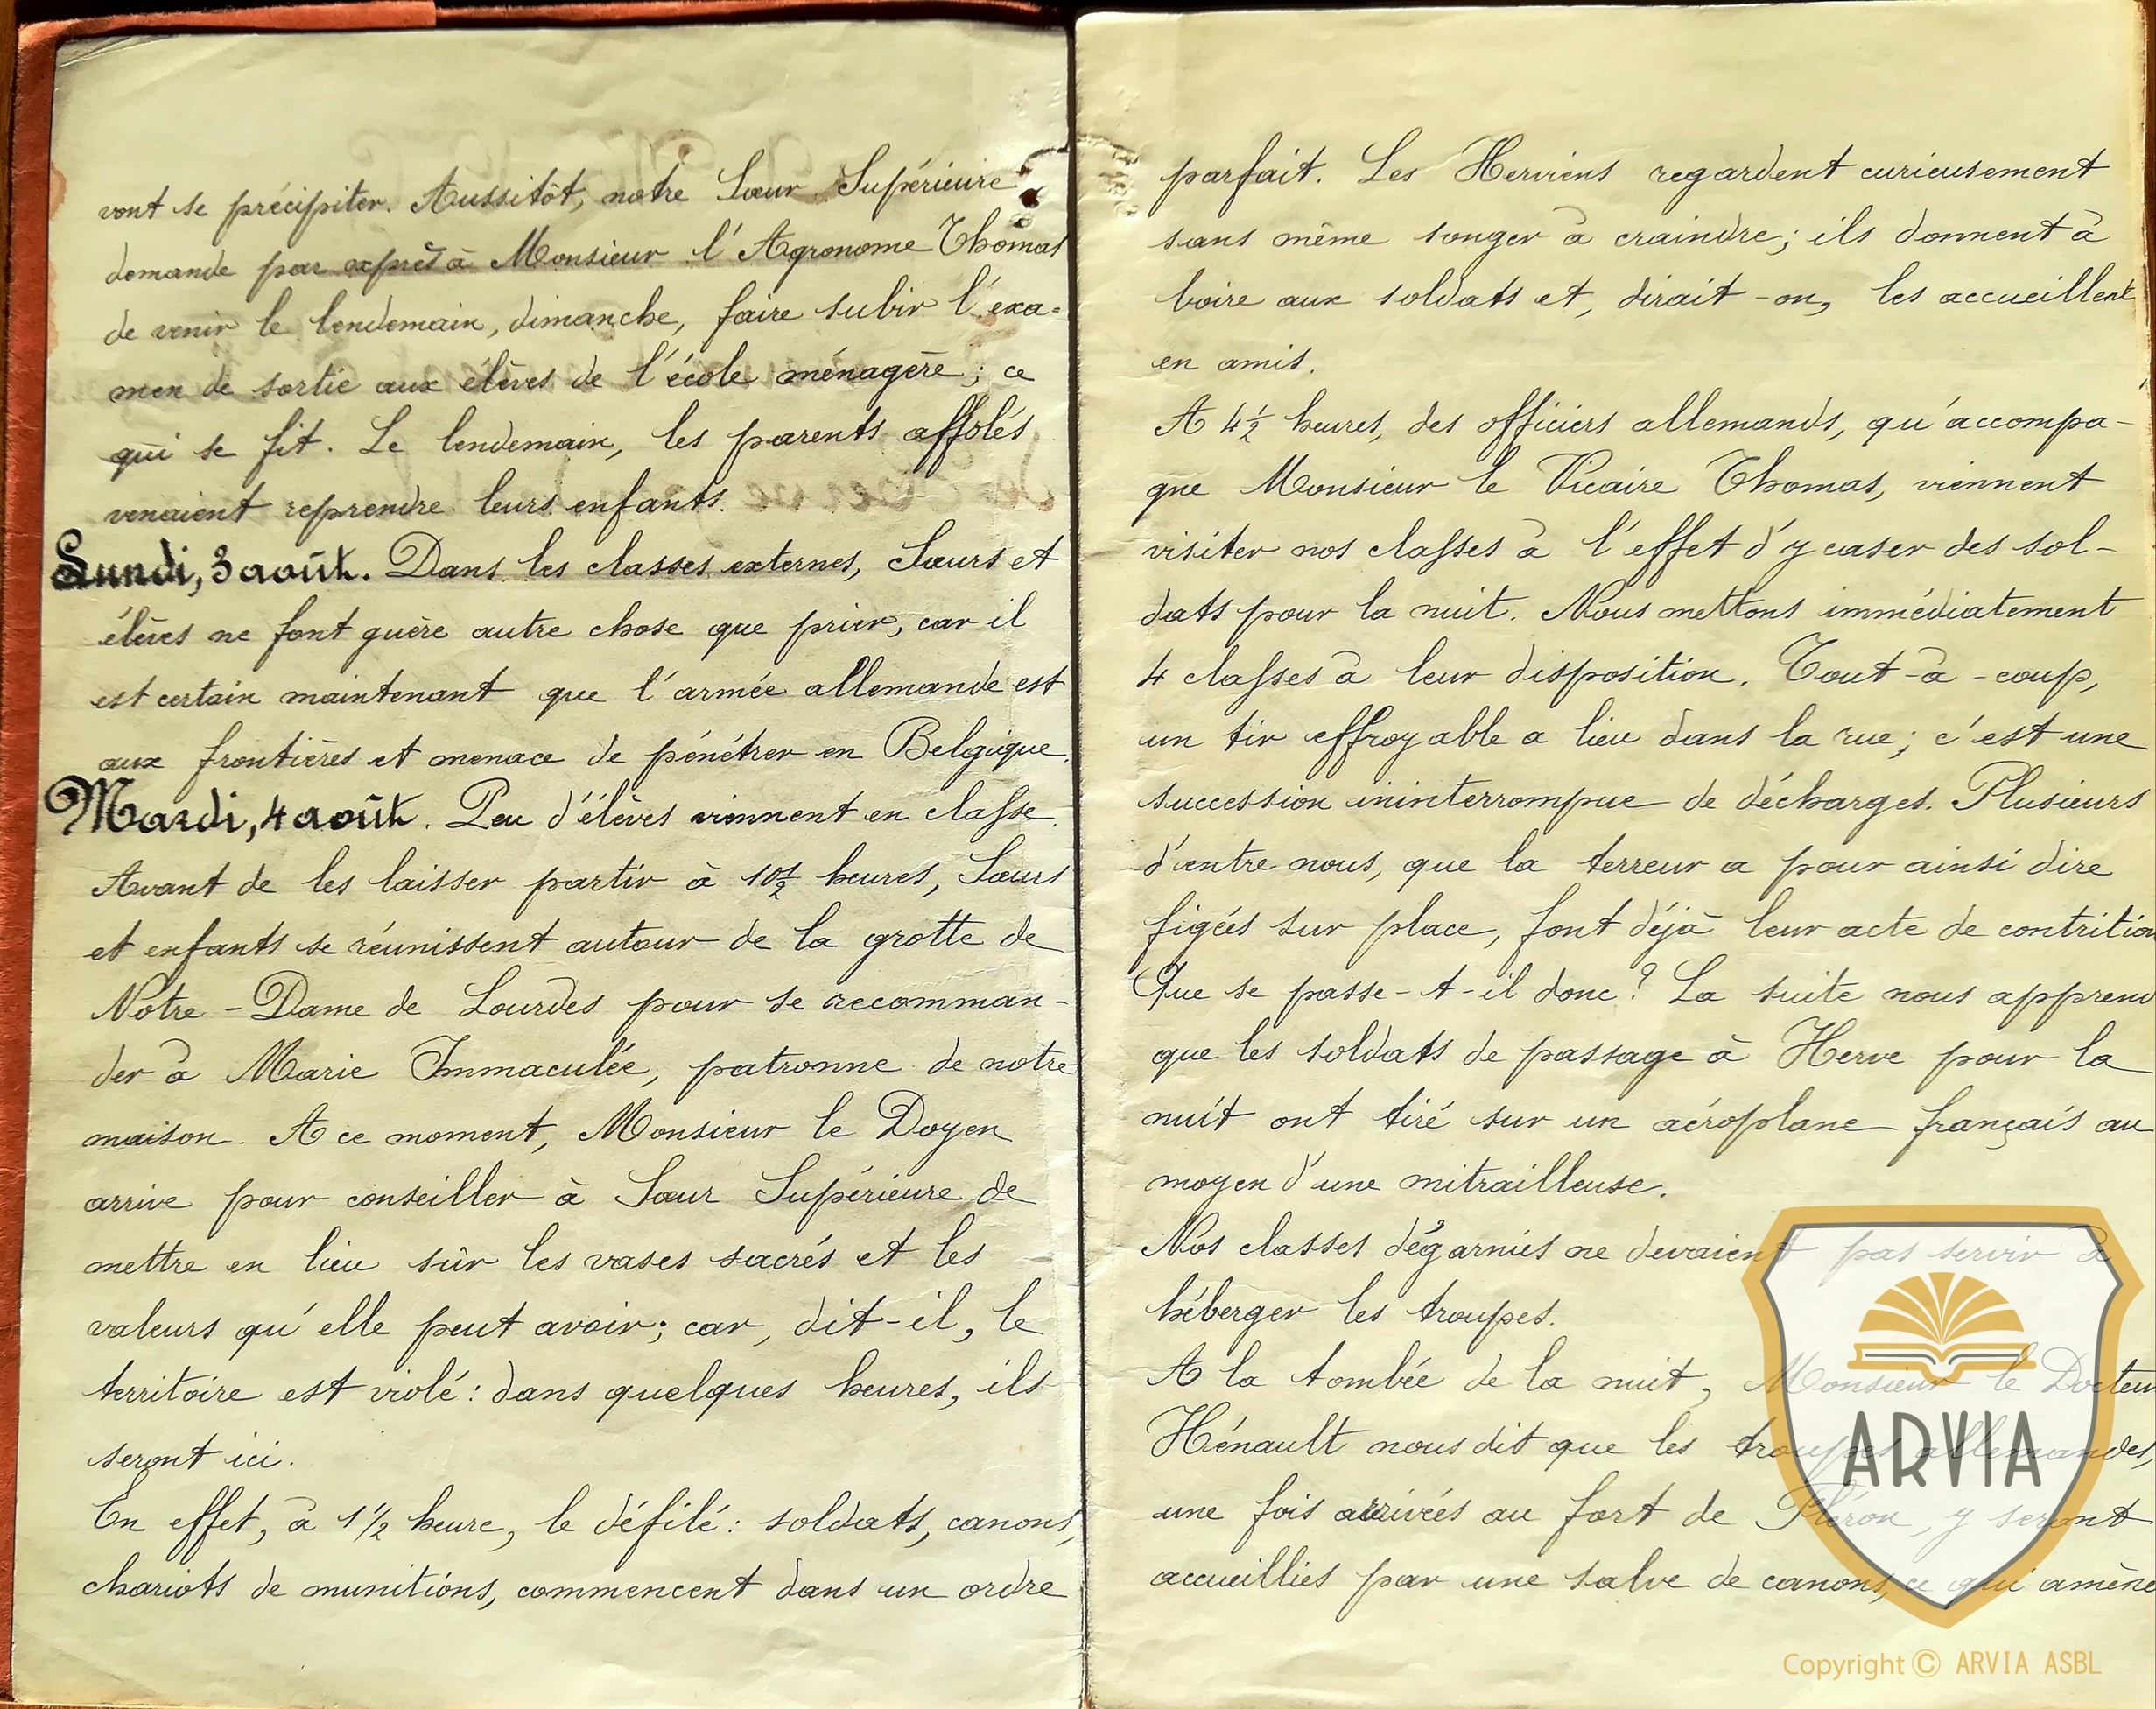 vont se précipiter. Aussitôt, notre Sœur Supérieure
demande par exprès à Monsieur l'Agronome Thomas
de venir le lendemain, dimanche, faire subir l'exa-
men de sortie aux élèves de l'école ménagère ; ce
qui se fit. Le lendemain, les parents affolés
venaient reprendre leurs enfants.
Lundi, 3 août. Dans les classes externes, Sœurs et
élèves ne font guère autre chose que prier, car il
est certain maintenant que l'armée allemande est
aux frontières et menace de pénétrer en Belgique.
Mardi, 4 août. Peu d'élèves viennent en classe.
Avant de les laisser partir à 10 1/2 heures, Sœurs
et enfants se réunissent autour de la grotte de
Notre-Dame de Lourdes pour se recomman-
der à Marie Immaculée, patronne de notre
maison. A ce moment, Monsieur le Doyen
arrive pour conseiller à Sœur Supérieure de
mettre en lieu sûr les vases sacrés et les
valeurs qu'elle peut avoir ; car, dit-il, le
territoire est violé : dans quelques heures, ils
seront ici.
En effet, à 1 1/2 heure, le défilé : soldats, canons,
chariots de munitions, commencent dans un ordre
parfait. Les Herviens regardent curieusement
sans même songer à craindre ; ils donnent à
boire aux soldats et, dirait-on, les accueillent
en amis.
A 4 1/2 heures, des officiers allemands, qu'accompa-
gne Monsieur le Vicaire Thomas, viennent
visiter nos classes à l'effet d'y caser des sol-
dats pour la nuit. Nous mettons immédiatement
4 classes à leur disposition. Tout-à-coup,
un tir effroyable a lieu dans la rue ; c'est une
succession ininterrompue de décharges. Plusieurs
d'entre nous, que la terreur a pour ainsi dire
figées sur place, font déjà leur acte de contrition
Que se passe-t-il donc ? La suite nous apprend
que les soldats de passage à Herve pour la
nuit ont tiré sur un aéroplane français au
moyen d'une mitrailleuse.
Nos classes dégarnies ne devaient pas servir à
héberger les troupes.
A la tombée de la nuit, Monsieur le Docteur
Hénault nous dit que les troupes allemandes,
une fois arrivées au fort de Fléron, y seront
accueillies par une salve de canons, ce qui amène
ARVIA
Copyright © ARVIA ASBL